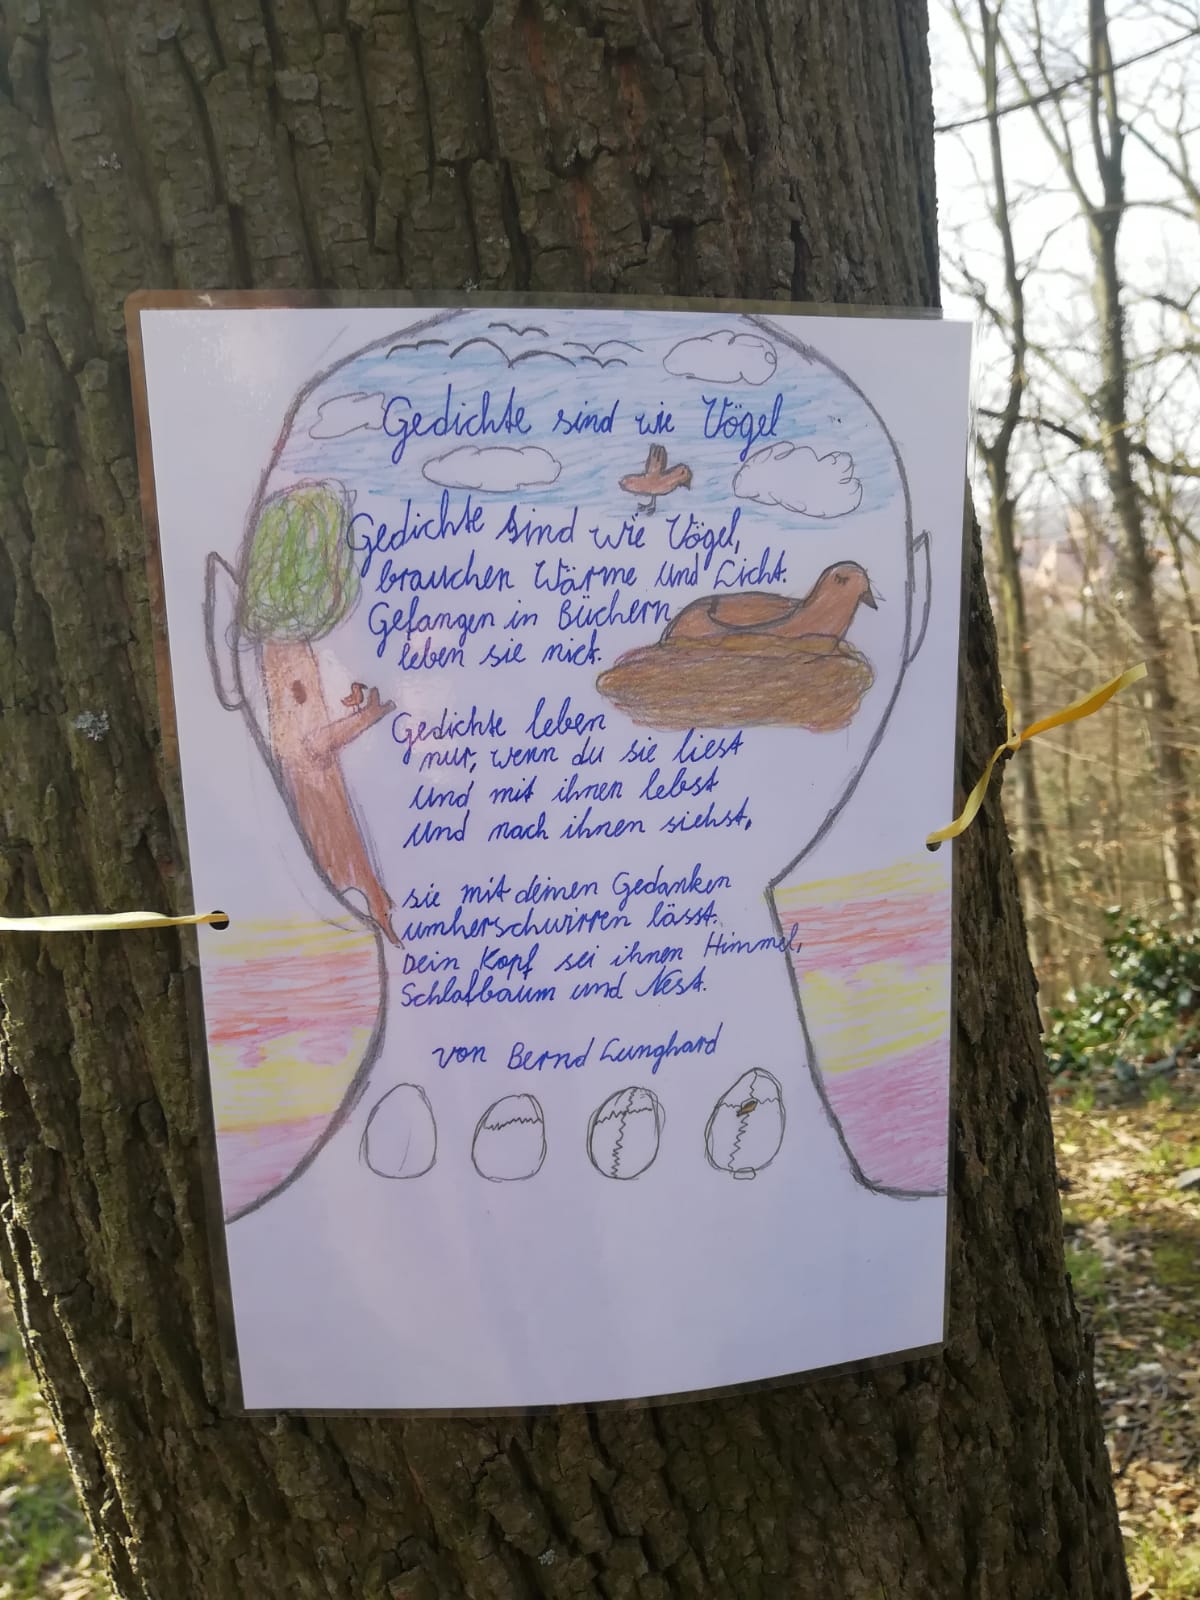 Gedichte sind wie Vögel
Gedichte sind wie Vögel,
brauchen Wärme und Licht.
Gefangen in Büchern
leben sie nict.
Gedichte leben
nur, wenn du sie liest
und mit ihnen lebst
und nach ihnen siehst,
sie mit deinen Gedanken
umherschwirren lässt.
Dein Kopf sei ihnen Himmel,
Schlafbaum und Nest.
von Bernd Lunghard